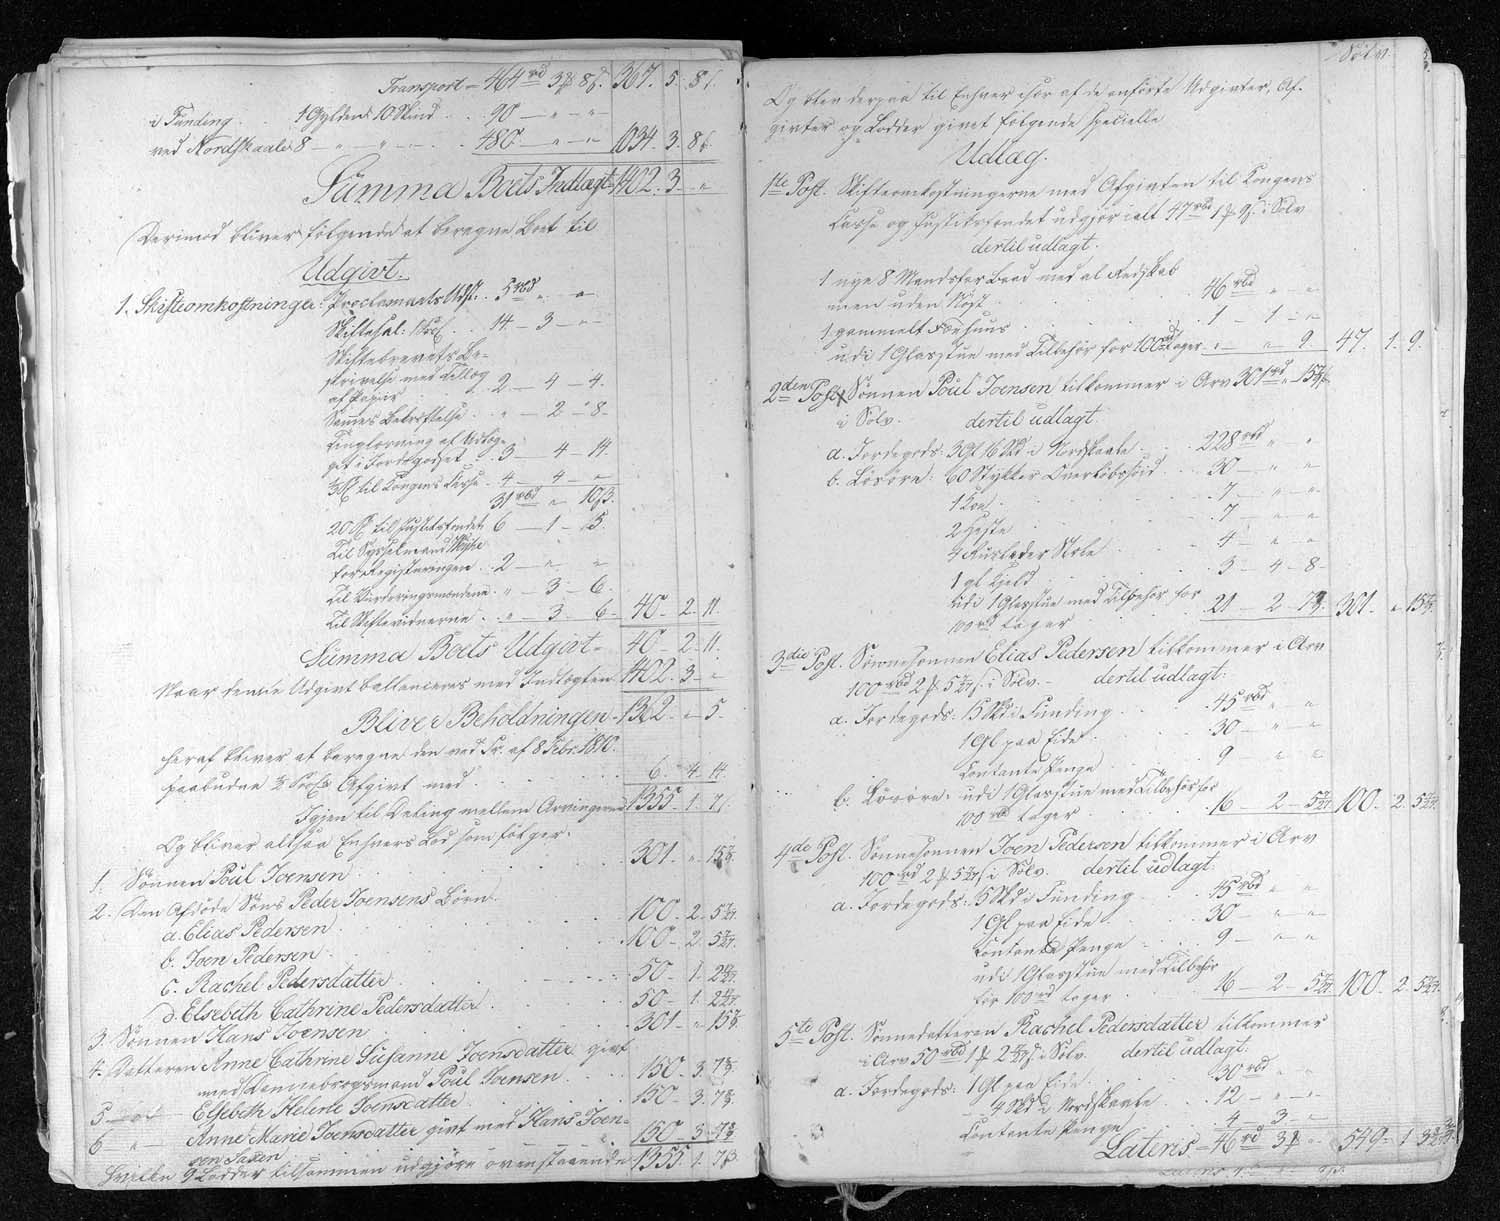 Transport = 464 rd 3 ₰ 8 ß. 367. 5. 8 ß.
i Funding . . 1 Gylden 10 Skind . . 90 — „ — „
ved Nordskaale 8 — „ — „ — . . 480. — „ — „ 1034. 3. 8 ß
Summa Boets Indtægt = 1402. 3. „
Derimod bliver følgende at beregne Boet til
Udgivt.
1. Skifteomkostninger: Proclamaets Udst. . 5 rbd „ „
Skiftesal: . . 14 — 3 — „
Skiftebrevets Be-
skrivelse med Tillæg
af Papiir . . 2 — 4 — 4.
Sammes Bekræftelse . . „ — 2 — 8.
Tinglæsning af Udlæg-
get i Jordegodset . 3 — 4 — 14.
til Kongens Casse . . 4 — 4 — „
31 rbd „ 10 ß.
til Justitsfondet 6 — 1 — 5.
Til Sysselmand
for Registeringen . 2 — „ — „
Til Vurderingsmændene . „ — 3 — 6.
Til Skiftevidnerne . . „ — 3. 6. 40 — 2 — 11.
Summa Boets Udgivt = 40 — 2 — 11.
Naar denne Udgivt ballanceres med Indtægten 1402. 3 — „
Bliver Beholdningen = 1362. „ 5.
heraf bliver at beregne den ved Fr. af 8 Febr. 1810.
paabudne ½ Afgivt med . . . . . 6. 4. 14.
Igjen til Deling mellem Arvingerne 1355 — 1. 7 ß.
Og bliver altsaa Enhvers Lod som følger:
1. Sønnen Poul Joensen . . . . 301. „ 15
2. Den Afdøde Søns Peder Joensens Børn.
a. Elias Pedersen . . . . 100 — 2. 5
b. Joen Pedersen . . . . 100 — 2. 5
c. Rachel Pedersdatter . . . . 50 — 1. 2
d. Elsebeth Cathrine Pedersdatter . . 50 — 1. 2
3. Sønnen Hans Joensen . . . . 301 „ 15
4. Datteren Anne Cathrine Susanne Joensdatter givt
med Dannebrogsmand Poul Joensen . . . 150. 3. 7
5 — Elsebeth Helene Joensdatter . . . 150 — 3. 7
6 „ Anne Marie Joensdatter givt med Hans Joen-
sen Saxen 150. 3. 7
hvilke 9 Lodder tilsammen udgjøre ovenstaaende 1355. 1. 7 ß
Sølv.
Og blev derpaa til Enhver især af de anførte Udgivter, Af-
givter og Lodder givet følgende specielle
Udlæg.
1te Post. Skifteomkostningerne med Afgivten til Kongens
Casse og Justitsfondet udgjør i alt 47 rbd 1 ₰ 9 ß. i Sølv
dertil udlagt.
1 nye 8 Mandsfar Baad med al Redskab
men uden Nøst . . . 46 rbd „ „
1 gammelt Fæhuus . . . 1 — 1 — „
udi 1 Glasstue med Tilbehør for 100 rd tager „ — „ 9 — 47. 1. 9.
2den Post. Sønnen Poul Joensen tilkommer i Arv 301 rd „ 15
i Sølv. dertil udlagt.
a. Jordegods: 3 Gl 16 Skd i Nordskaale . . 228 rbd „ „
b. Løsøre: 60 Stykker . . 30 — „ „
1 Koe . . . . 7 — „ „
2 Heste . . . . 7 — „ „
4 Ruslæder Stole . . . 4 — „ „
1 gl. . . . 3 — 4 — 8 —
udi 1 Glasstue med Tilbehør for
100 rd tager . . . 21 — 2 — 7 301. „ 15
3die Post. Sønnesønnen Elias Pedersen tilkommer i Arv
100 rbd 2 ₰ 5 i Sølv. — dertil udlagt:
a. Jordegods: 15 Skd i Funding . . 45 rbd „ „
1 Gl paa Eide . . . 30 — „ „
Contante Penge . . . 9 — „ „
b. Løsøre: udi 1 Glasstue med Tilbehør for
100 rd tager . . . 16 — 2 — 5 100. 2. 5
4de Post. Sønnesønnen Joen Pedersen tilkommer i Arv
100 rd 2 ₰ 5 i Sølv. dertil udlagt:
a. Jordegods: 15 Skd i Funding . . 45 rbd „ „
1 Gl paa Eide . . . 30 — „ „
Contante Penge . . . 9 — „ „
udi 1 Glasstue med Tilbehør
for 100 rd tager . . . 16 — 2 — 5 100. 2. 5
5te Post. Sønnedatteren Rachel Pedersdatter tilkommer
i Arv 50 rbd 1 ₰ 2 i Sølv. dertil udlagt:
a. Jordegods: 1 Gl paa Eide . . . 30 rbd „ „
„ 4 Skd i Nordskaale . . 12 — „ „
Contante Penge . . . 4 3 „
Lateris = 46 rd 3 ₰ „ 549. 1. 3